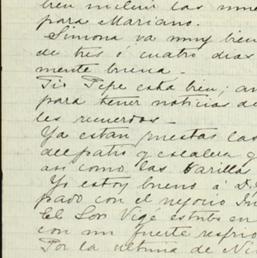 bien incluir las
para Mariano.
Simona va muy bien
de tres ó cuatro dias
mente buena
Tio Pepe está bien; an
para tener noticias de
les recuerdos —
Ya estan puestas las
del patio y escalera y
así como las
Yo estoy bueno á D.
pado con el negocio
El Sor Vige estubo en
con un fuerte
Por la ultima de